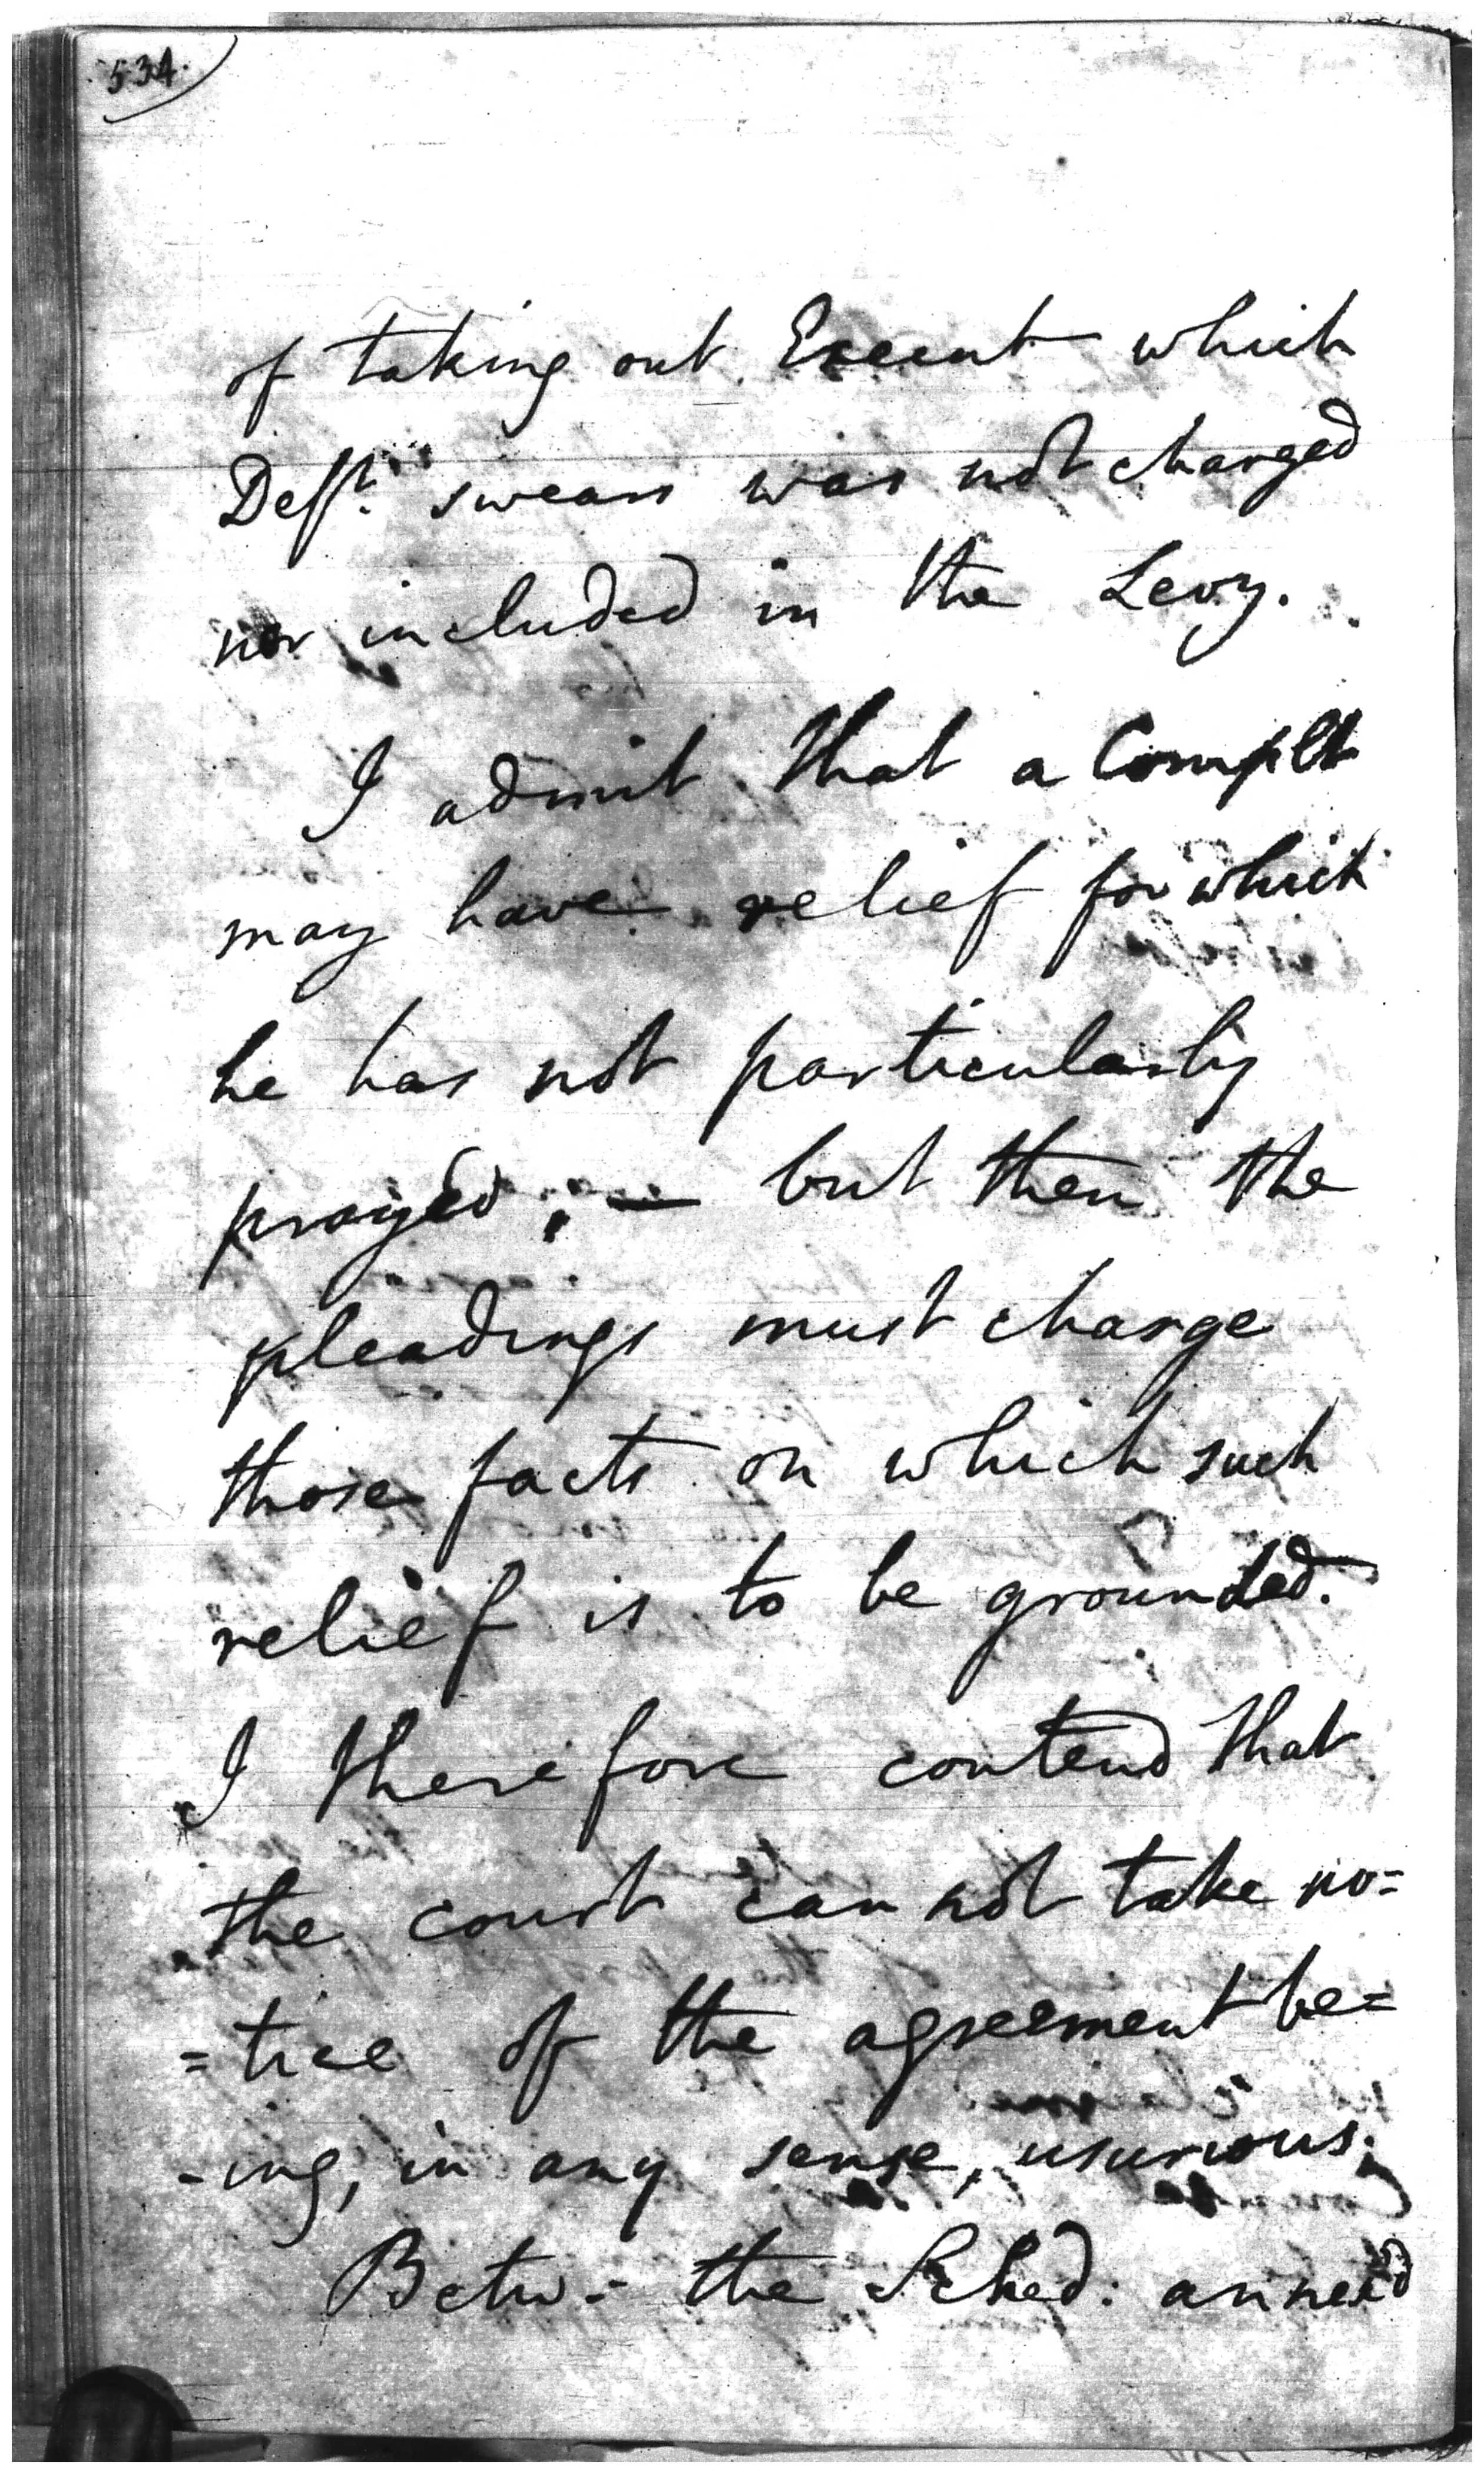 534.
of taking out Execut which
Defft. swears was not charged
nor included in the Levy.
I admit that a Complt
may have relief for which
he has not particularly
prayed; — but then the
pleadings must charge
those facts on which such
relief is to be grounded.
I therefore contend that
the court can not take no=
=tice of the agreement be=
-ing, in any sense, usurious.
Betw- the Sched: annexd